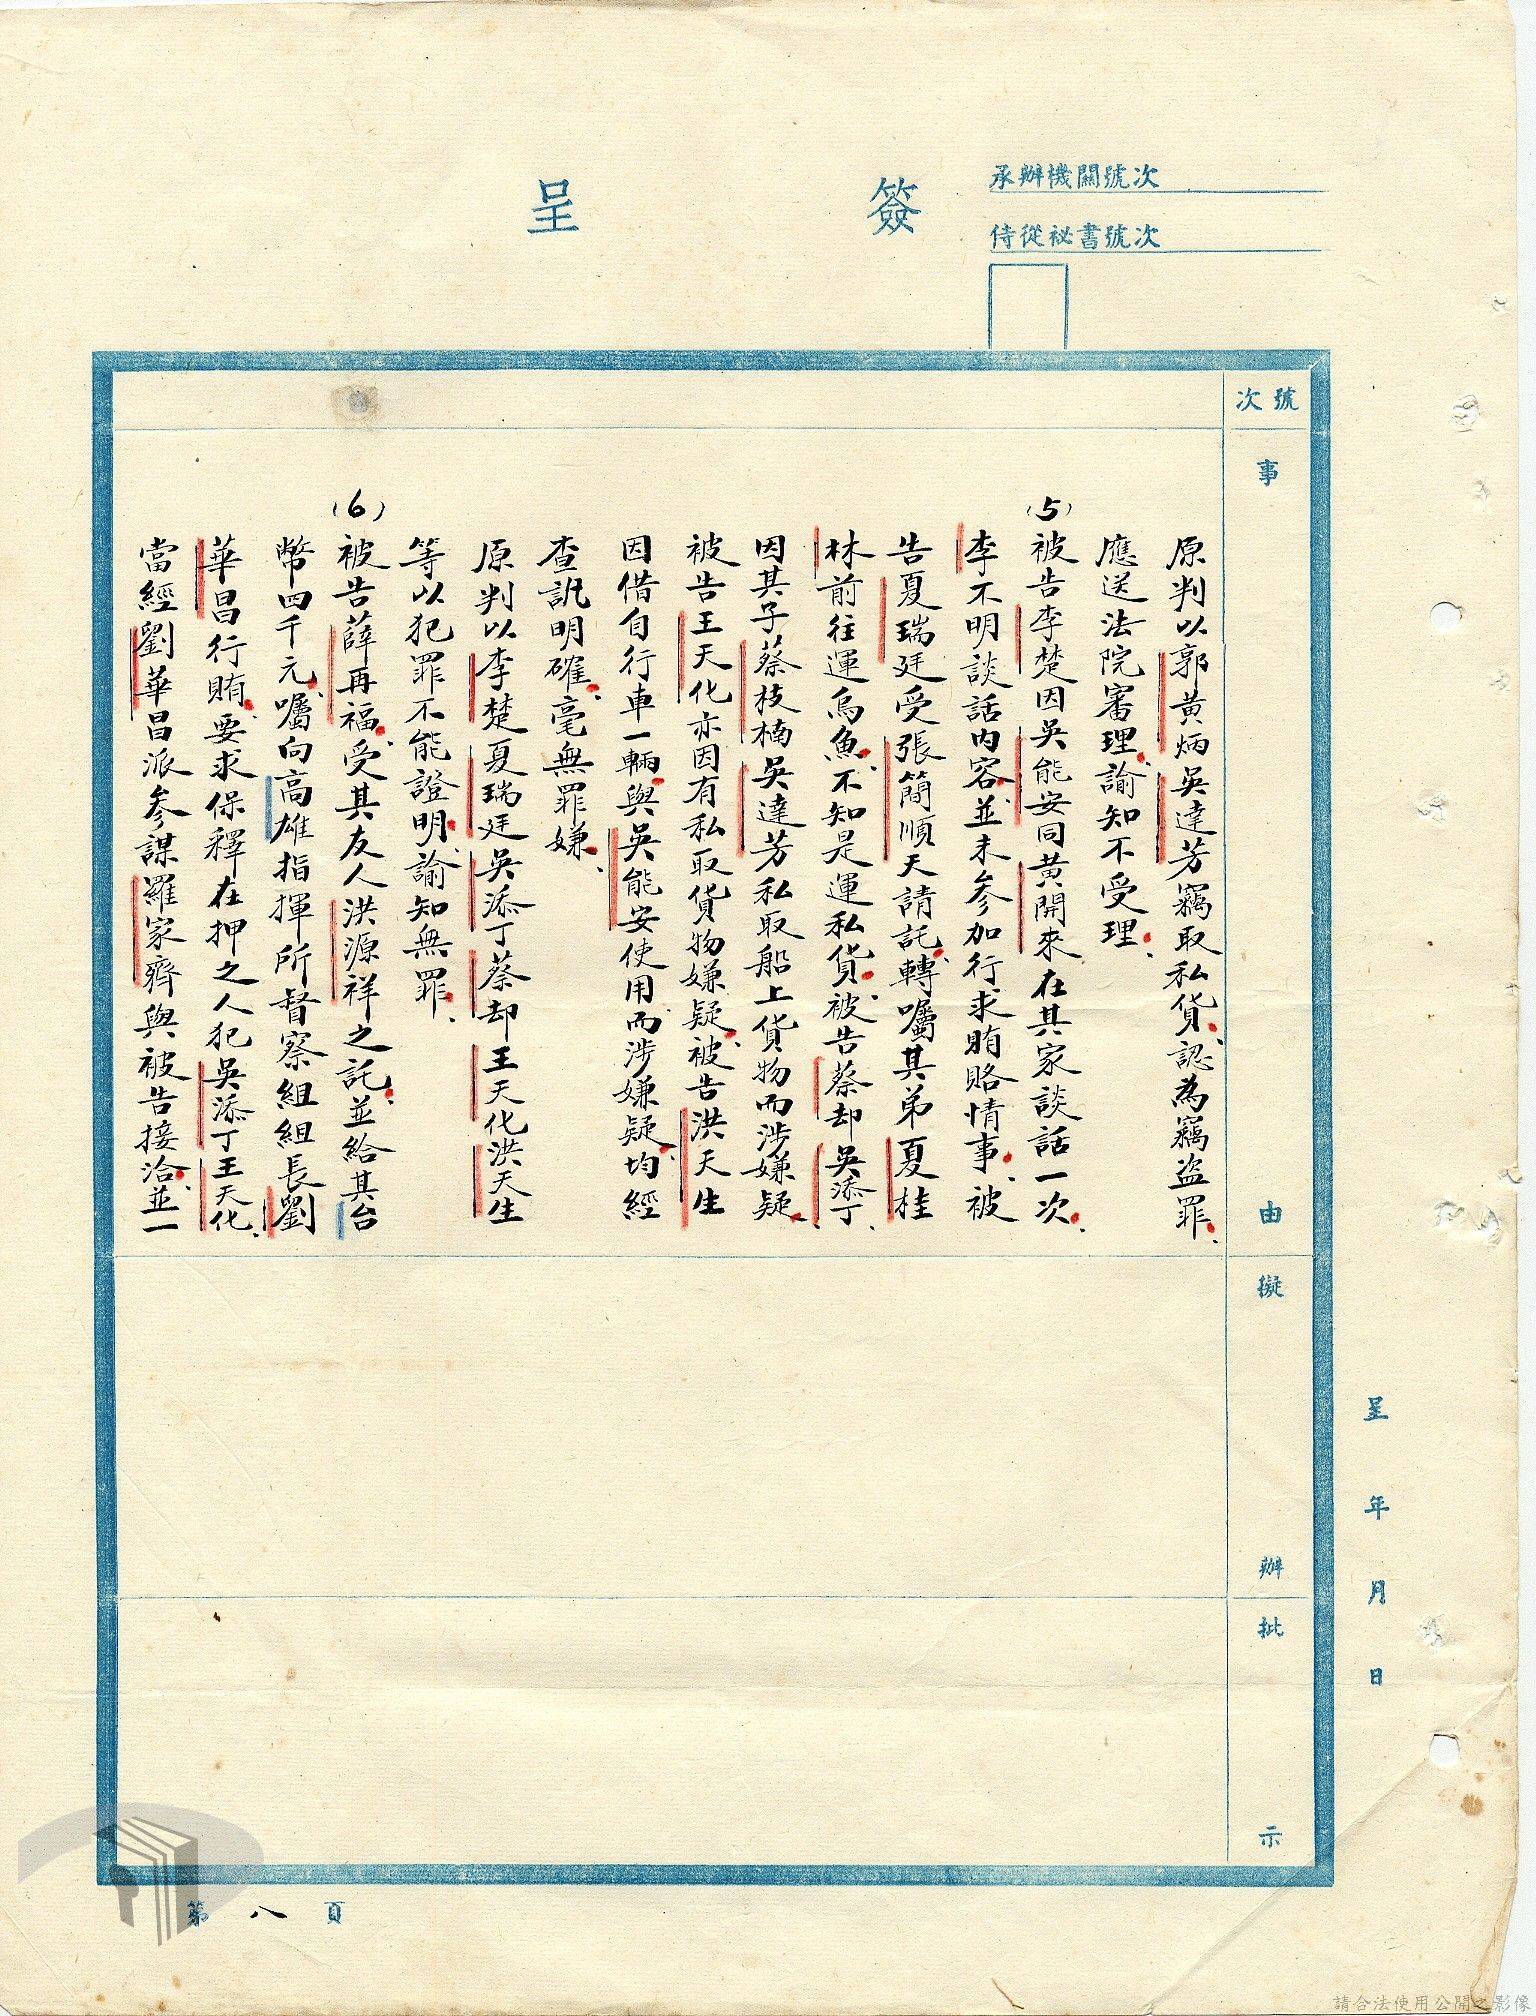 簽呈
承辦機關號次
侍從祕書號次
號次
事由
擬辦
批示
原判以郭黃炳吳達芳竊取私貨、認為竊盜罪、
應送法院審理、諭知不受理、
(5)被告李楚因吳能安同黃開來在其家談話一次、
李不明談話內容、並未參加行求賄賂情事、被
告夏瑞廷受張簡順天請託、轉囑其弟夏桂
林前往運烏魚、不知是運私貨、被告蔡却吳添丁、
因其子蔡枝楠吳達芳私取船上貨物而涉嫌疑、
被告王天化亦因有私取貨物嫌疑、被告洪天生
因借自行車一輛與吳能安使用而涉嫌疑、均經
查訊明確、毫無罪嫌、
原判以李楚夏瑞廷吳添丁蔡却王天化洪天生
等以犯罪不能證明、諭知無罪、
(6)被告薛再福、受其友人洪源祥之託、並給其台
幣四千元、囑向高雄指揮所督察組組長劉
華昌行賄、要求保釋在押之人犯吳添丁王天化、
當經劉華昌派參謀羅家齊與被告接洽、並一
呈 年 月 日
第八頁
請合法使用公開之影像